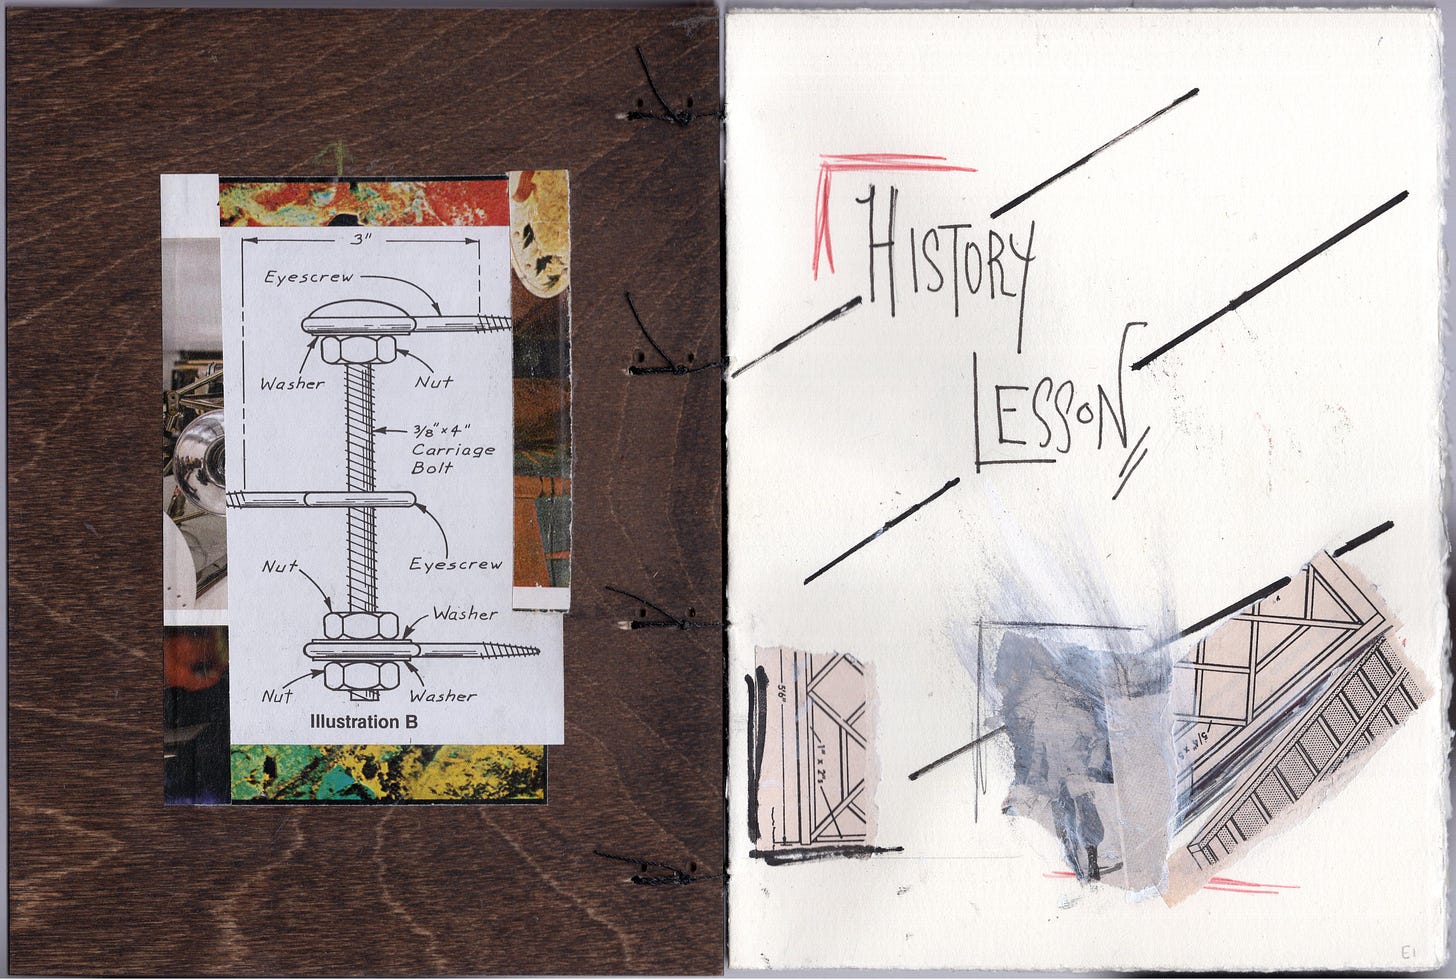 3"
Eyescrew
Washer
Nut
3/8" x 4"
Carriage
Bolt
Eyescrew
Nut
Washer
Nut
Washer
Illustration B
HISTORY
LESSON
5'6"
1" x 2"s
E1